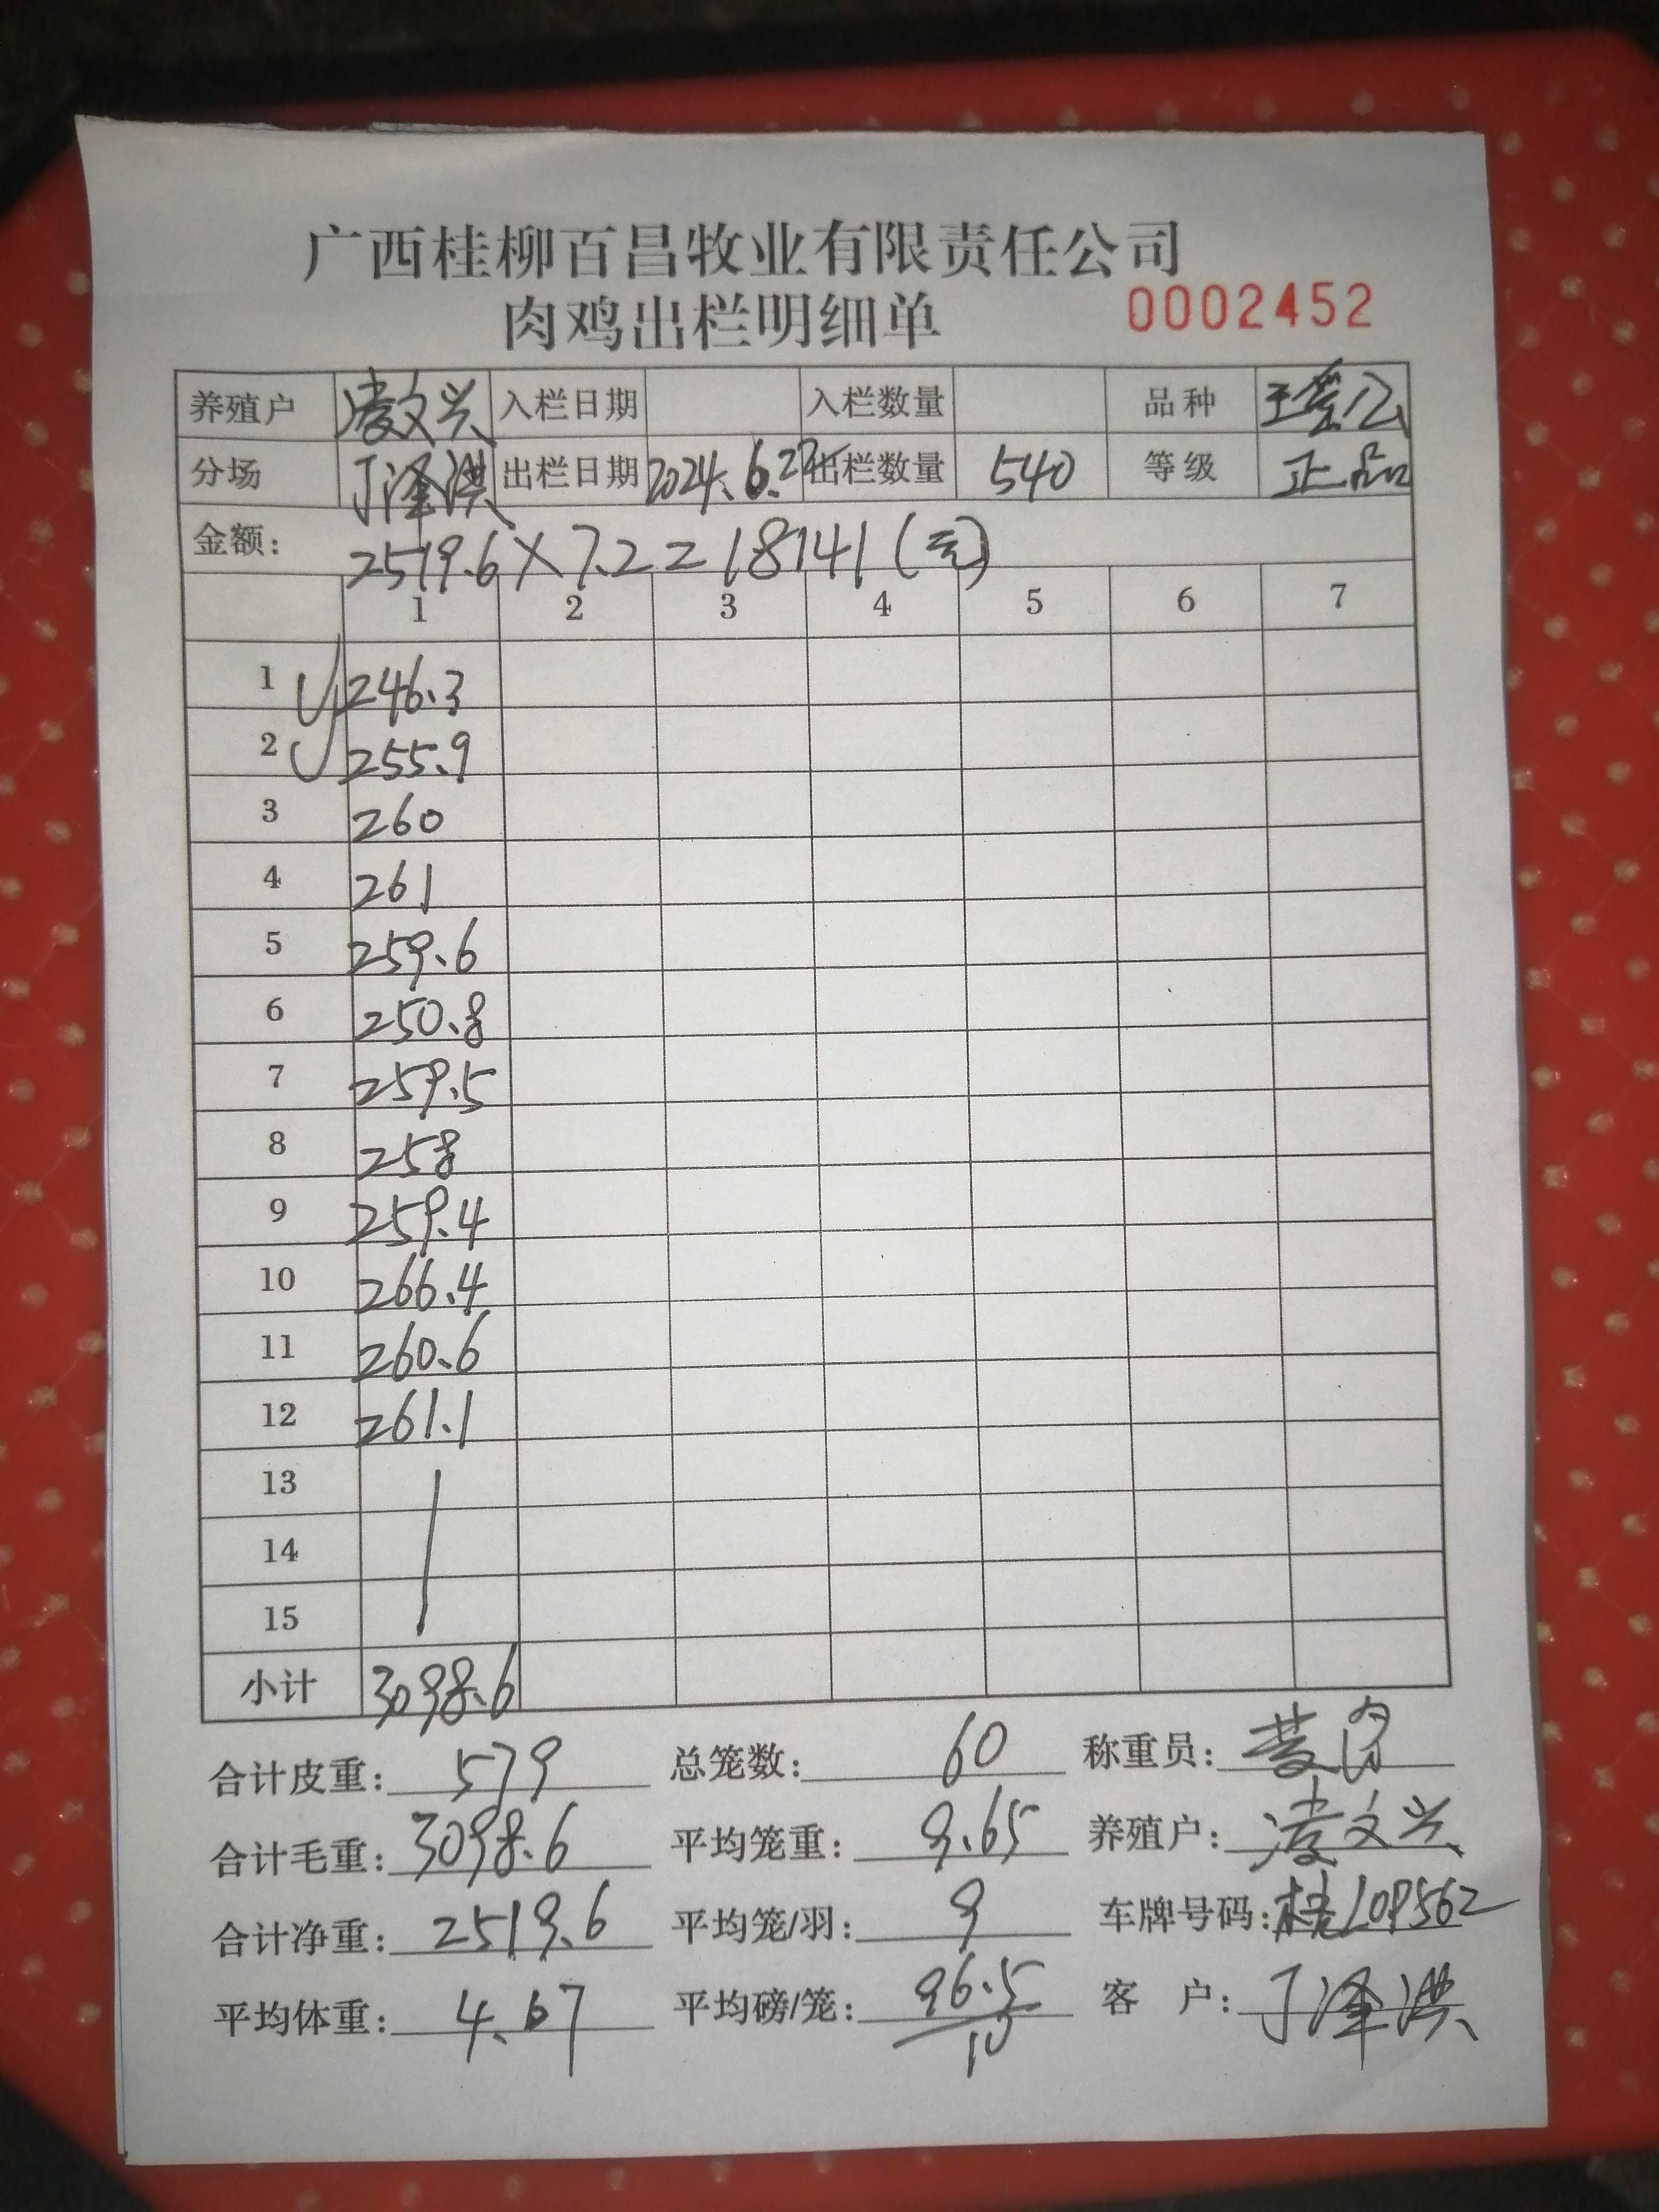 广西桂柳百昌牧业有限责任公司
肉鸡出栏明细单 0002452
养殖户 凌文兴 入栏日期 入栏数量 品种
分场 丁泽洪 出栏日期 2024.6.22 出栏数量 540 等级 正品
金额: 2519.6×7.2=18141(元)
1 2 3 4 5 6 7
1 246.3
2 255.9
3 260
4 261
5 259.6
6 250.8
7 259.5
8 258
9 259.4
10 266.4
11 260.6
12 261.1
13
14
15
小计 3098.6
合计皮重: 579 总笼数: 60 称重员:
合计毛重: 3098.6 平均笼重: 9.65 养殖户: 凌文兴
合计净重: 2519.6 平均笼/羽: 9 车牌号码: 桂L09562
平均体重: 4.67 平均磅/笼: 96.5/10 客 户: 丁泽洪